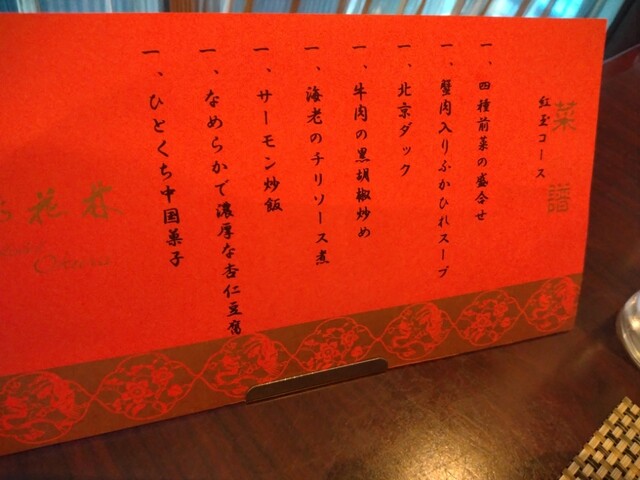 菜譜
紅玉コース
一、四種前菜の盛合せ
一、蟹肉入りふかひれスープ
一、北京ダック
一、牛肉の黒胡椒炒め
一、海老のチリソース煮
一、サーモン炒飯
一、なめらかで濃厚な杏仁豆腐
一、ひとくち中国菓子